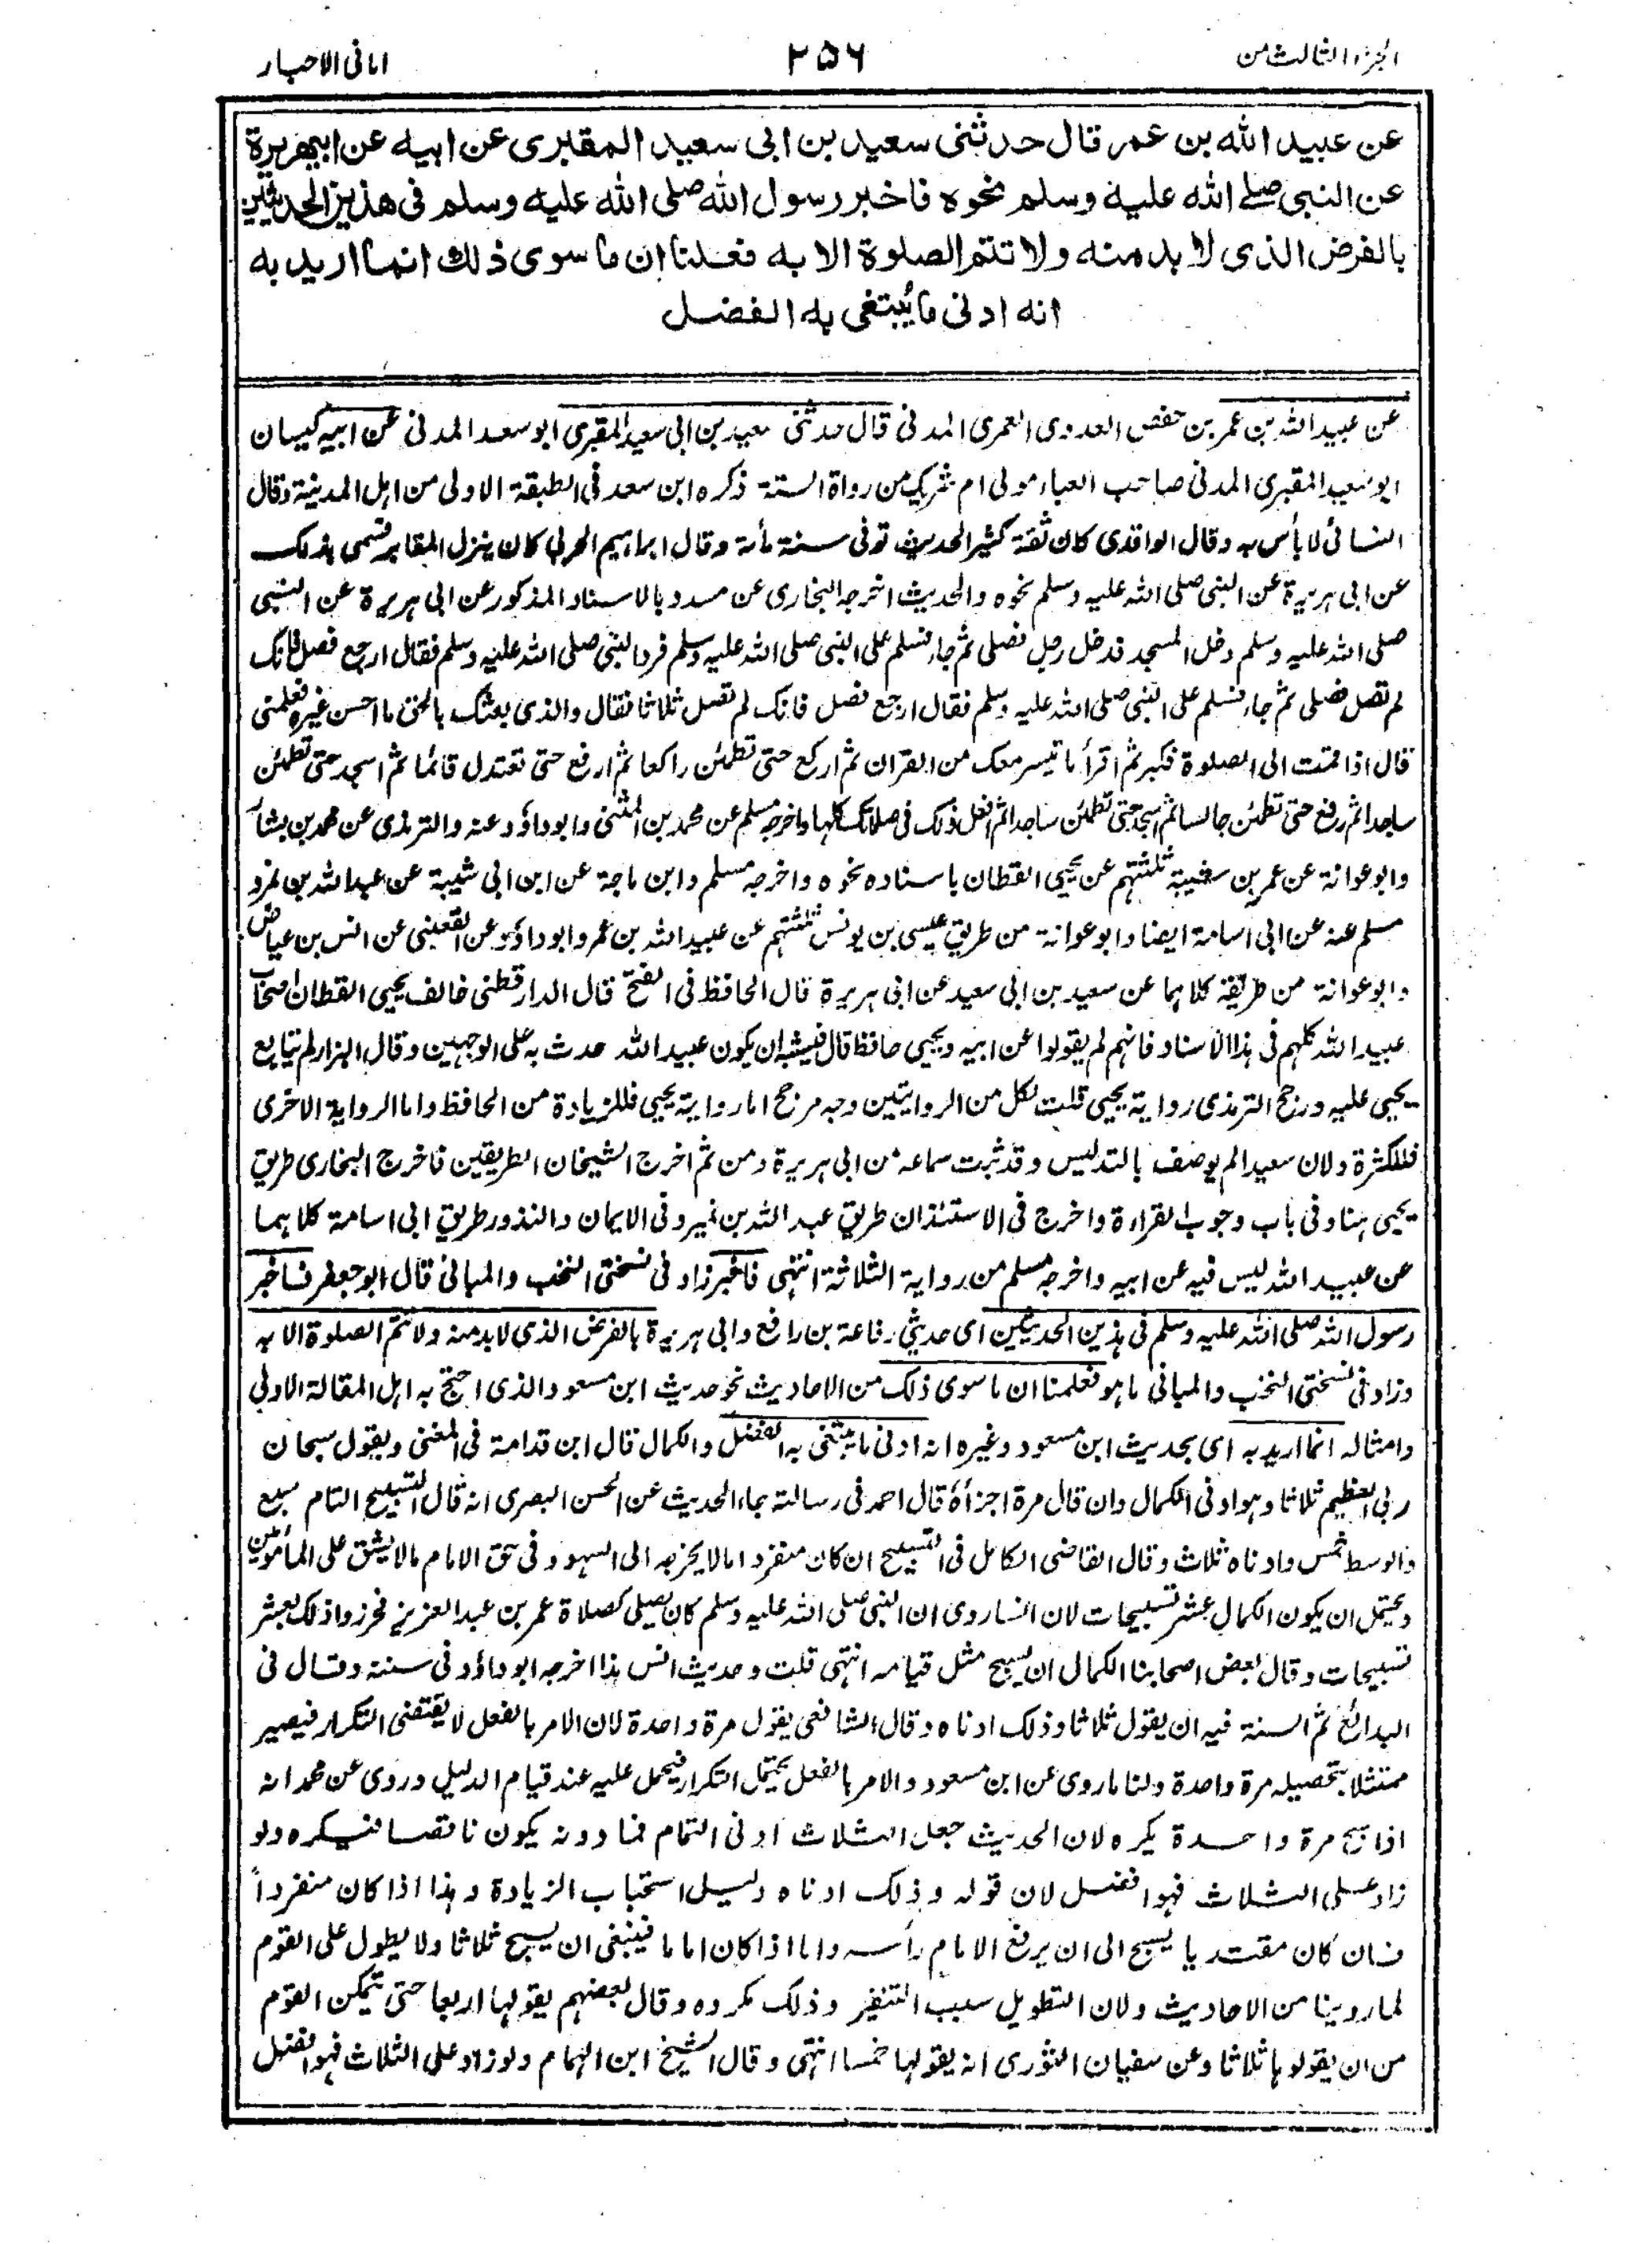 الجزء الثالث من
٢٥٦
امانى الاحبار
عن عبيد الله بن عمر قال حدثنى سعيد بن ابى سعيد المقبرى عن ابيه عن ابيهريرة
عن النبى صلے الله عليه وسلم نحوه فاخبر رسول الله صلى الله عليه وسلم فى هذين الحديثين
بالفرض الذى لا بد منه ولا تتم الصلوة الا به فعلمنا ان ما سوى ذلك انما اريد به
انه ادنى ما يُبتغى به الفضل
عن عبيد الله بن عمر بن حفص العدوى العمرى المدنى قال حدثنى سعيد بن ابى سعيد المقبرى ابو سعد المدنى عن ابيه كيسان
ابو سعيد المقبرى المدنى صاحب العباء مولى ام شريك من رواة الستة ذكره ابن سعد فى الطبقة الاولى من اهل المدينة وقال
النسائى لا بأس به وقال الواقدى كان ثقة كثير الحديث توفى سنة مأة وقال ابراهيم الحربى كان ينزل المقابر فسمى بذلك
عن ابى هريرة عن النبى صلى الله عليه وسلم نحوه والحديث اخرجه البخارى عن مسدد بالاسناد المذكور عن ابى هريرة عن النبى
صلى الله عليه وسلم دخل المسجد فدخل رجل فصلى ثم جاء فسلم على النبى صلى الله عليه وسلم فرد النبى صلى الله عليه وسلم فقال ارجع فصل فانك
لم تصل فصلى ثم جاء فسلم على النبى صلى الله عليه وسلم فقال ارجع فصل فانك لم تصل ثلاثا فقال والذى بعثك بالحق ما احسن غيره فعلمنى
قال اذا قمت الى الصلوة فكبر ثم اقرأ ما تيسر معك من القران ثم اركع حتى تطمئن راكعا ثم ارفع حتى تعتدل قائما ثم اسجد حتى تطمئن
ساجدا ثم ارفع حتى تطمئن جالسا ثم اسجد حتى تطمئن ساجدا ثم افعل ذلك فى صلاتك كلها واخرجه مسلم عن محمد بن المثنى وابو داؤد عنه والترمذى عن محمد بن بشار
وابو عوانة عن عمر بن شبة ثلثتهم عن يحيى القطان باسناده نحوه واخرجه مسلم وابن ماجة عن ابن ابى شيبة عن عبد الله بن نمير و
مسلم عنه عن ابى اسامة ايضا وابو عوانة من طريق عيسى بن يونس ثلثتهم عن عبيد الله بن عمر وابو داؤد عن القعنبى عن انس بن عياض
وابو عوانة من طريقه كلاهما عن سعيد بن ابى سعيد عن ابى هريرة قال الحافظ فى الفتح قال الدارقطنى خالف يحيى القطان اصحاب
عبيد الله كلهم فى هذا الاسناد فانهم لم يقولوا عن ابيه ويحيى حافظ قال فيشبه ان يكون عبيد الله حدث به على الوجهين وقال البزار لم يتابع
يحيى عليه ورجح الترمذى رواية يحيى قلت لكل من الروايتين وجه مرجح اما رواية يحيى فللزيادة من الحافظ واما الرواية الاخرى
فللكثرة ولان سعيدا لم يوصف بالتدليس وقد ثبت سماعه من ابى هريرة ومن ثم اخرج الشيخان الطريقين فاخرج البخارى طريق
يحيى هنا وفى باب وجوب القراءة واخرج فى الاستئذان طريق عبد الله بن نمير وفى الايمان والنذور طريق ابى اسامة كلاهما
عن عبيد الله ليس فيه عن ابيه واخرجه مسلم من رواية الثلاثة انتهى فاخبر زاد فى نسختى النخب والمبانى قال ابو جعفر فاخبر
رسول الله صلى الله عليه وسلم فى هذين الحديثين اى حديثى رفاعة بن رافع وابى هريرة بالفرض الذى لا بد منه ولا تتم الصلوة الا به
وزاد فى نسختى النخب والمبانى ما هو فعلمنا ان ما سوى ذلك من الاحاديث نحو حديث ابن مسعود والذى احتج به اهل المقالة الاولى
وامثاله انما اريد به اى بحديث ابن مسعود وغيره انه ادنى ما يبتغى به الفضل والكمال قال ابن قدامة فى المغنى ويقول سبحان
ربى العظيم ثلاثا وهو ادنى الكمال وان قال مرة اجزأه قال احمد فى رسالته جاء الحديث عن الحسن البصرى انه قال التسبيح التام سبع
والوسط خمس وادناه ثلاث وقال القاضى الكامل فى التسبيح ان كان منفردا ما لا يخرجه الى السهو وفى حق الامام ما لا يشق على المأمومين
ويحتمل ان يكون الكمال عشر تسبيحات لان انسا روى ان النبى صلى الله عليه وسلم كان يصلى كصلاة عمر بن عبد العزيز فحزروا ذلك بعشر
تسبيحات وقال بعض اصحابنا الكمال ان يسبح مثل قيامه انتهى قلت وحديث انس هذا اخرجه ابو داؤد فى سننه وقال فى
البدائع ثم السنة فيه ان يقول ثلاثا وذلك ادناه وقال الشافعى يقول مرة واحدة لان الامر بالفعل لا يقتضى التكرار فيصير
ممتثلا بتحصيله مرة واحدة ولنا ما روى عن ابن مسعود والامر بالفعل يحتمل التكرار فيحمل عليه عند قيام الدليل وروى عن محمد انه
اذا سبح مرة واحدة يكره لان الحديث جعل الثلاث ادنى التمام فما دونه يكون ناقصا فيكره ولو
زاد على الثلاث فهو افضل لان قوله وذلك ادناه دليل استحباب الزيادة وهذا اذا كان منفرداً
فان كان مقتديا يسبح الى ان يرفع الامام رأسه واما اذا كان اماما فينبغى ان يسبح ثلاثا ولا يطول على القوم
لما روينا من الاحاديث ولان التطويل سبب التنفير وذلك مكروه وقال بعضهم يقولها اربعا حتى يتمكن القوم
من ان يقولوها ثلاثا وعن سفيان الثورى انه يقولها خمسا انتهى وقال الشيخ ابن الهمام ولو زاد على الثلاث فهو افضل